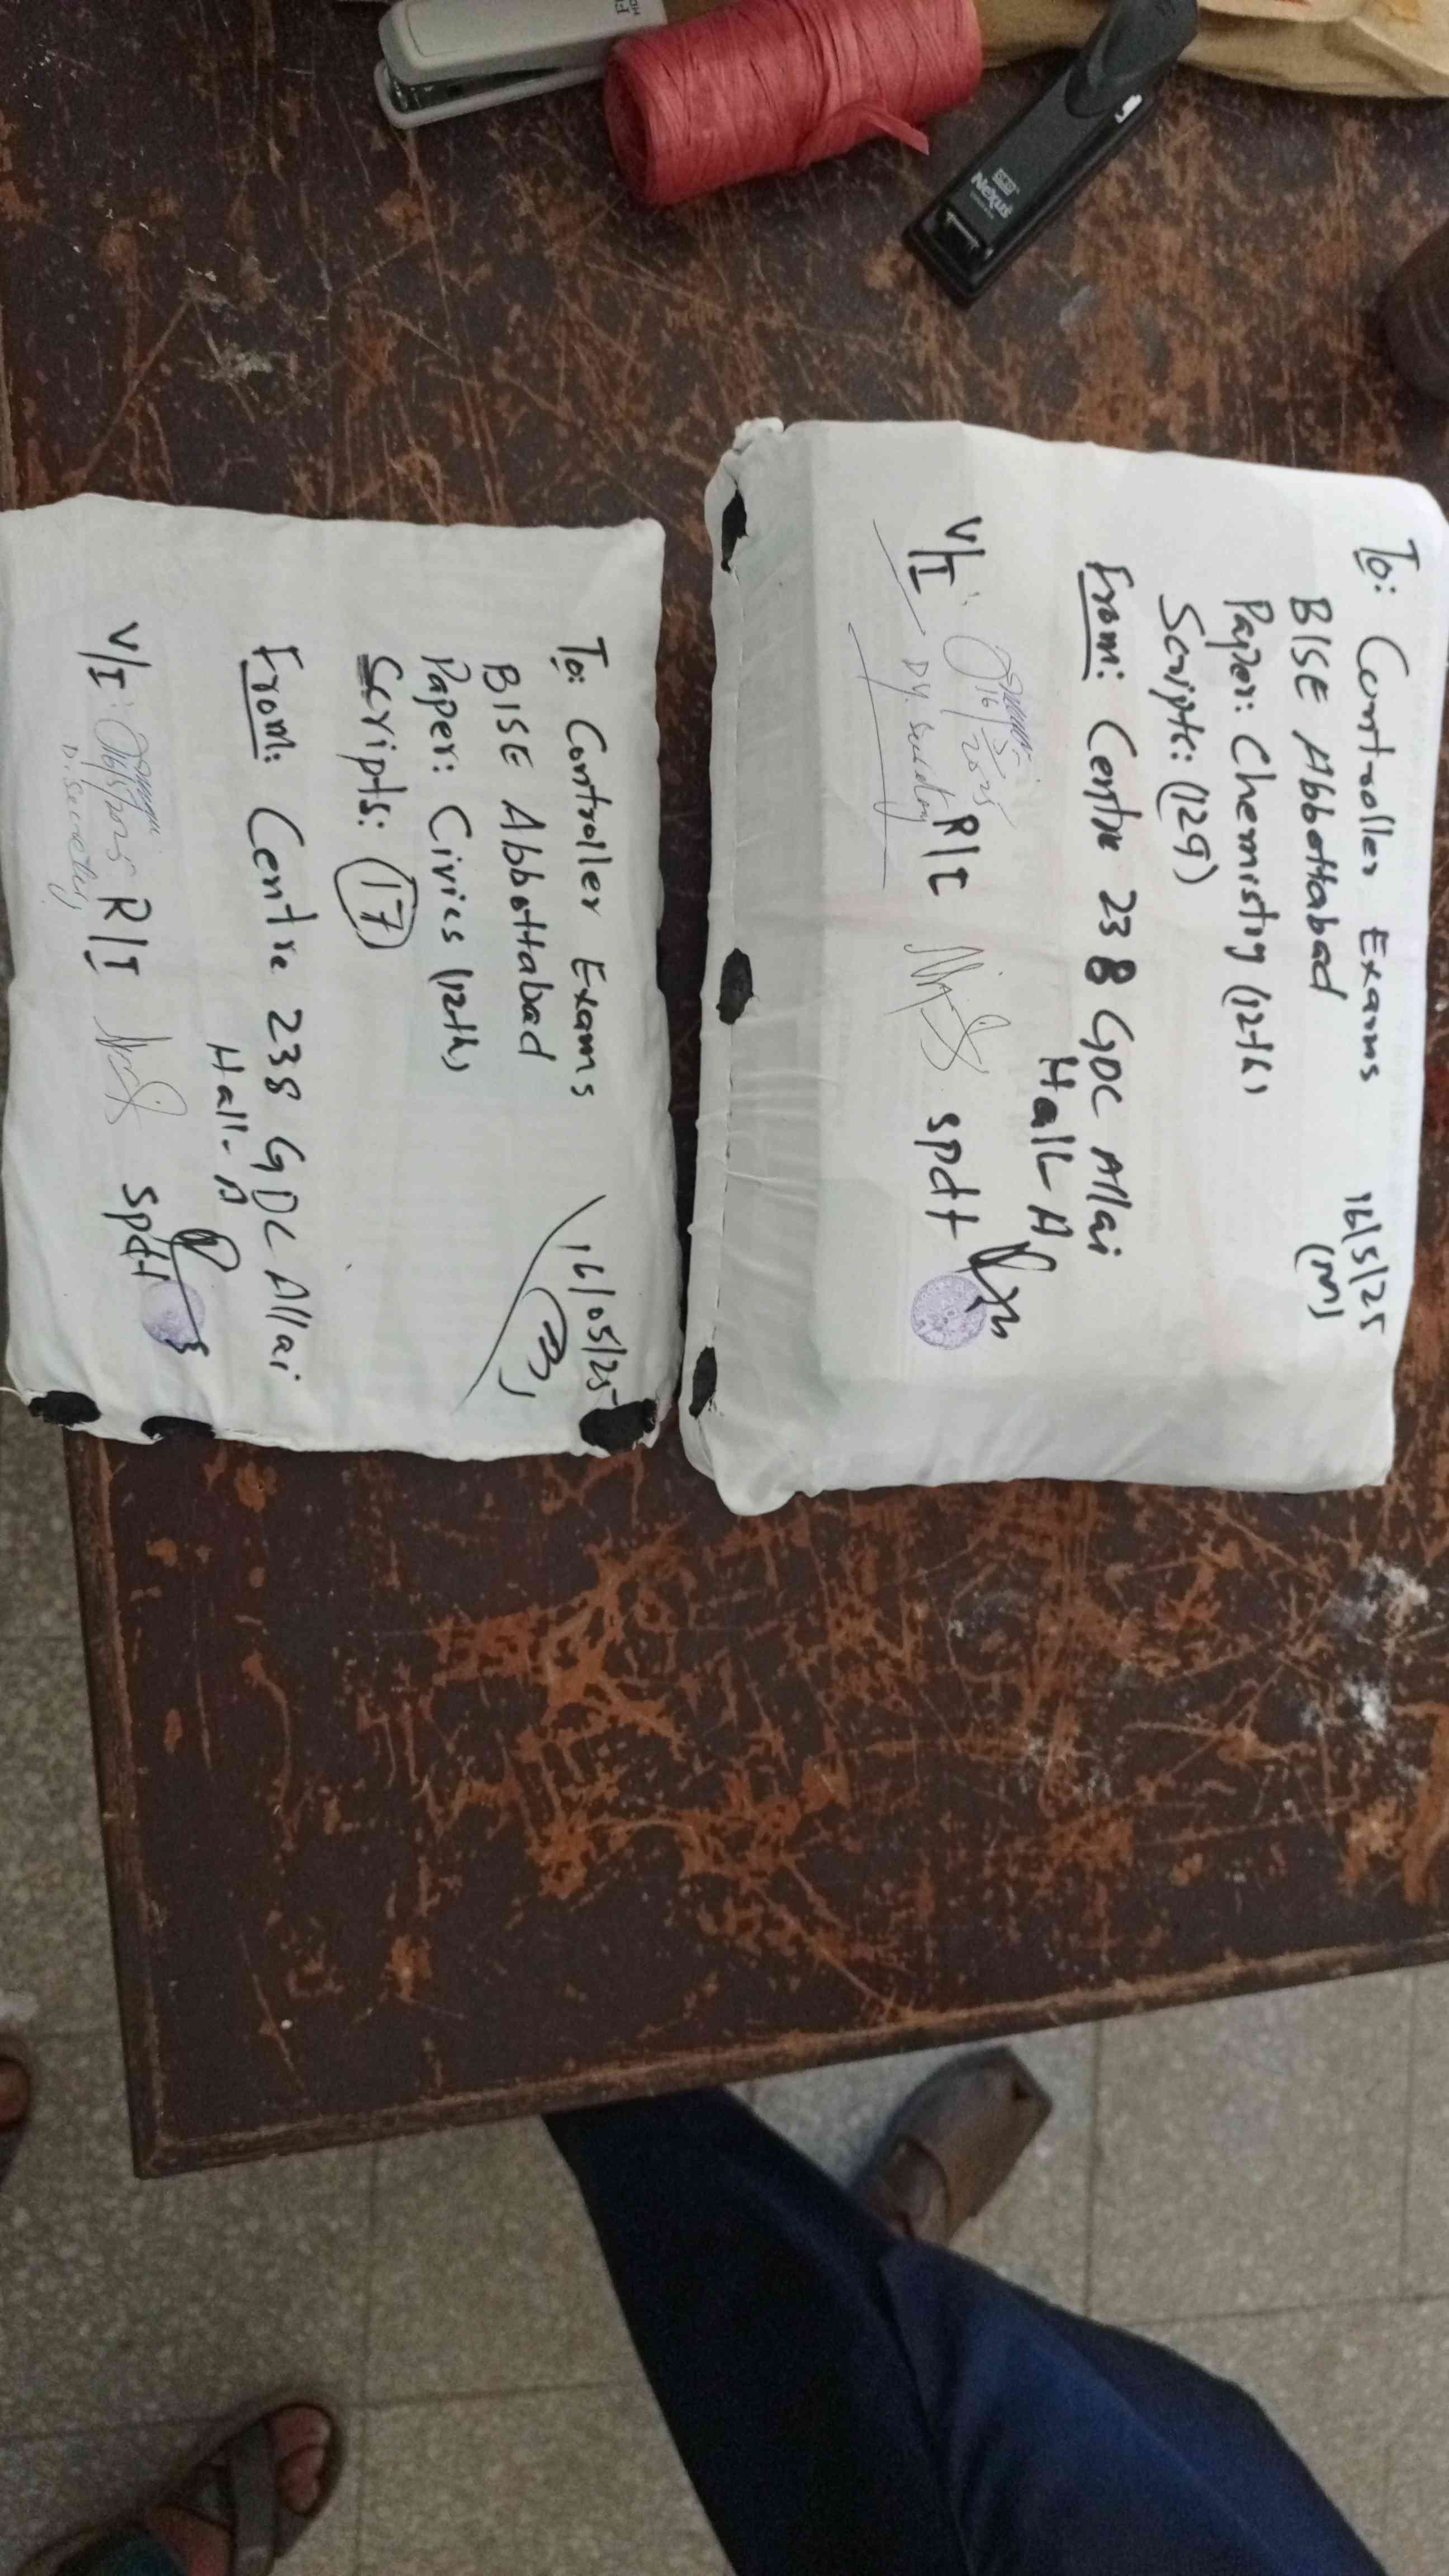 To: Controller Exams 16/5/25
BISE Abbottabad (M)
Paper: Chemistry (12th)
Scripts: (129)
From: Centre 238 GDC Allai
Hall A
V/I: 16/5/2025 R/I spdt
Dy. Secretary
To: Controller Exams 16/05/25
BISE Abbottabad (M)
Paper: Civics (12th)
Scripts: (17)
From: Centre 238 GDC Allai
Hall-A
V/I: 16/5/2025 R/I spdt
D. Secretary
Nexus